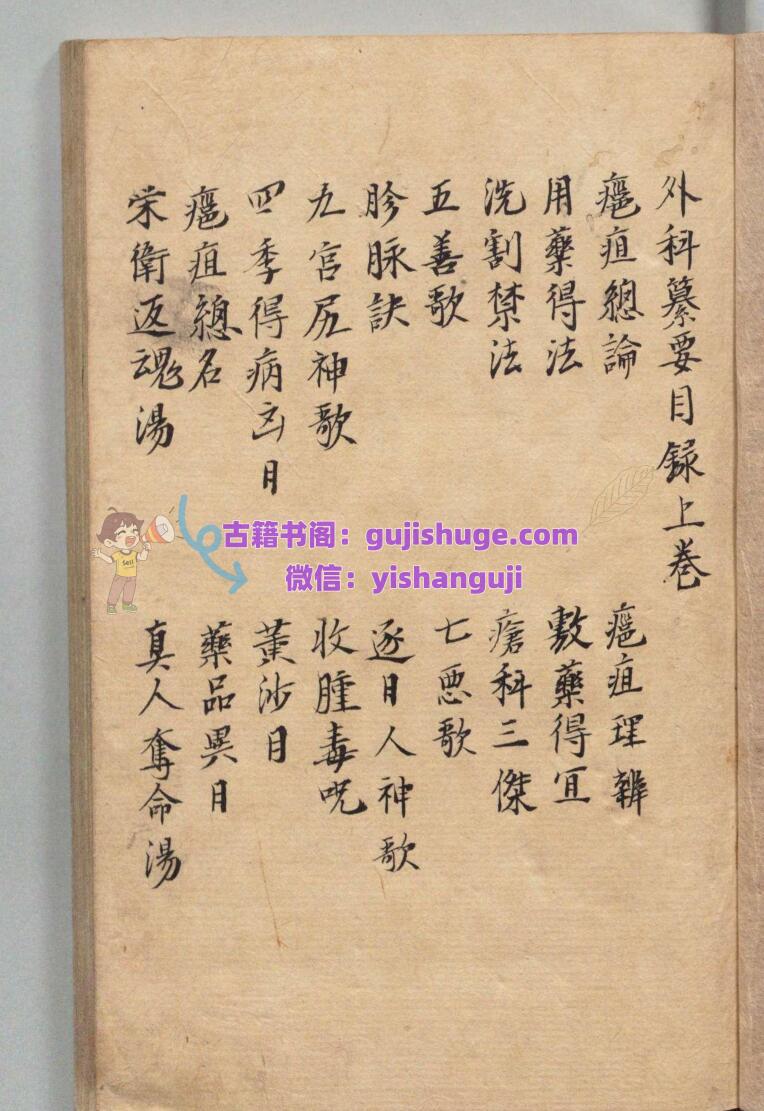 外科纂要目録上巻
癰疽總論
癰疽理辨
用藥得法
敷藥得宜
洗割禁法
瘡科三傑
五善歌
七惡歌
胗脉訣
逐日人神歌
九宮尻神歌
收腫毒咒
四季得病凶日
黃沙日
癰疽總名
藥品異目
栄衛返魂湯
真人奪命湯
古籍书阁：gujishuge.com
微信：yishanguji
Sell